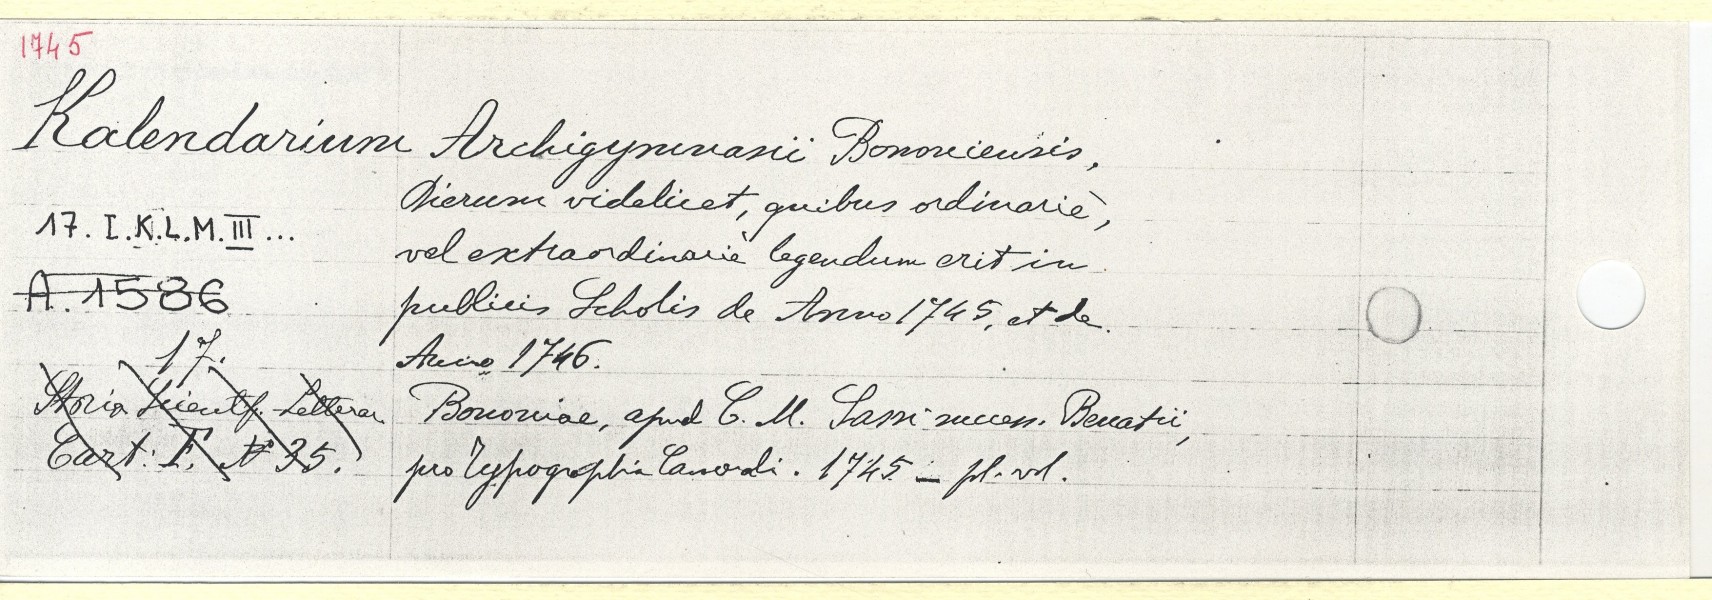 1745
Kalendarium Archigymnasii Bononiensis,
Dierum videlicet, quibus ordinariè,
17. I.K.L.M.III...
vel extraordinariè legendum erit in
A. 1586
publicis Scholis de Anno 1745, et de
17.
Anno 1746.
Storia Scientif. Letterar.
Bononiae, apud C. M. Sassi succes. Benatii,
Cart: F. N 35.
pro Typographia Camerali. 1745 _ pl. vol.